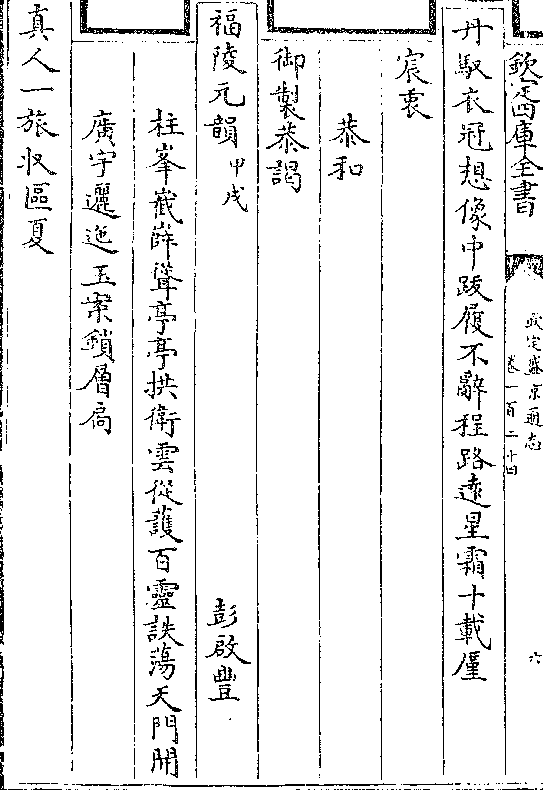 欽定四庫全書
欽定盛京通志
卷一百二十四
六
丹馭衣冠想像中跋履不辭程路遠星霜十載廑
宸衷
恭和
御製恭謁
福陵元韻甲戌 彭啟豐
柱峯嶻嶭聳亭亭拱衛雲從護百靈詄蕩天門開
廣宇邐迤玉案鎖層扃
真人一旅收區夏